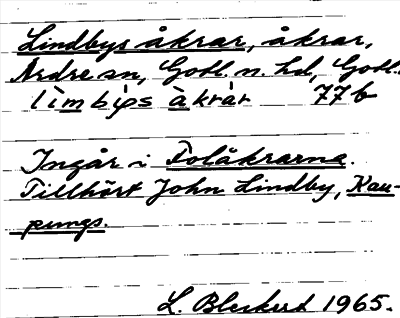 Lindbys åkrar, åkrar,
Ardre sn, Gotl. n. hd, Gotl.
lìmbı̨ps àkràr 77 b
Ingår i Folåkrarna.
Tillhört John Lindby, Kau-
pungs.
L. Bleckert 1965.